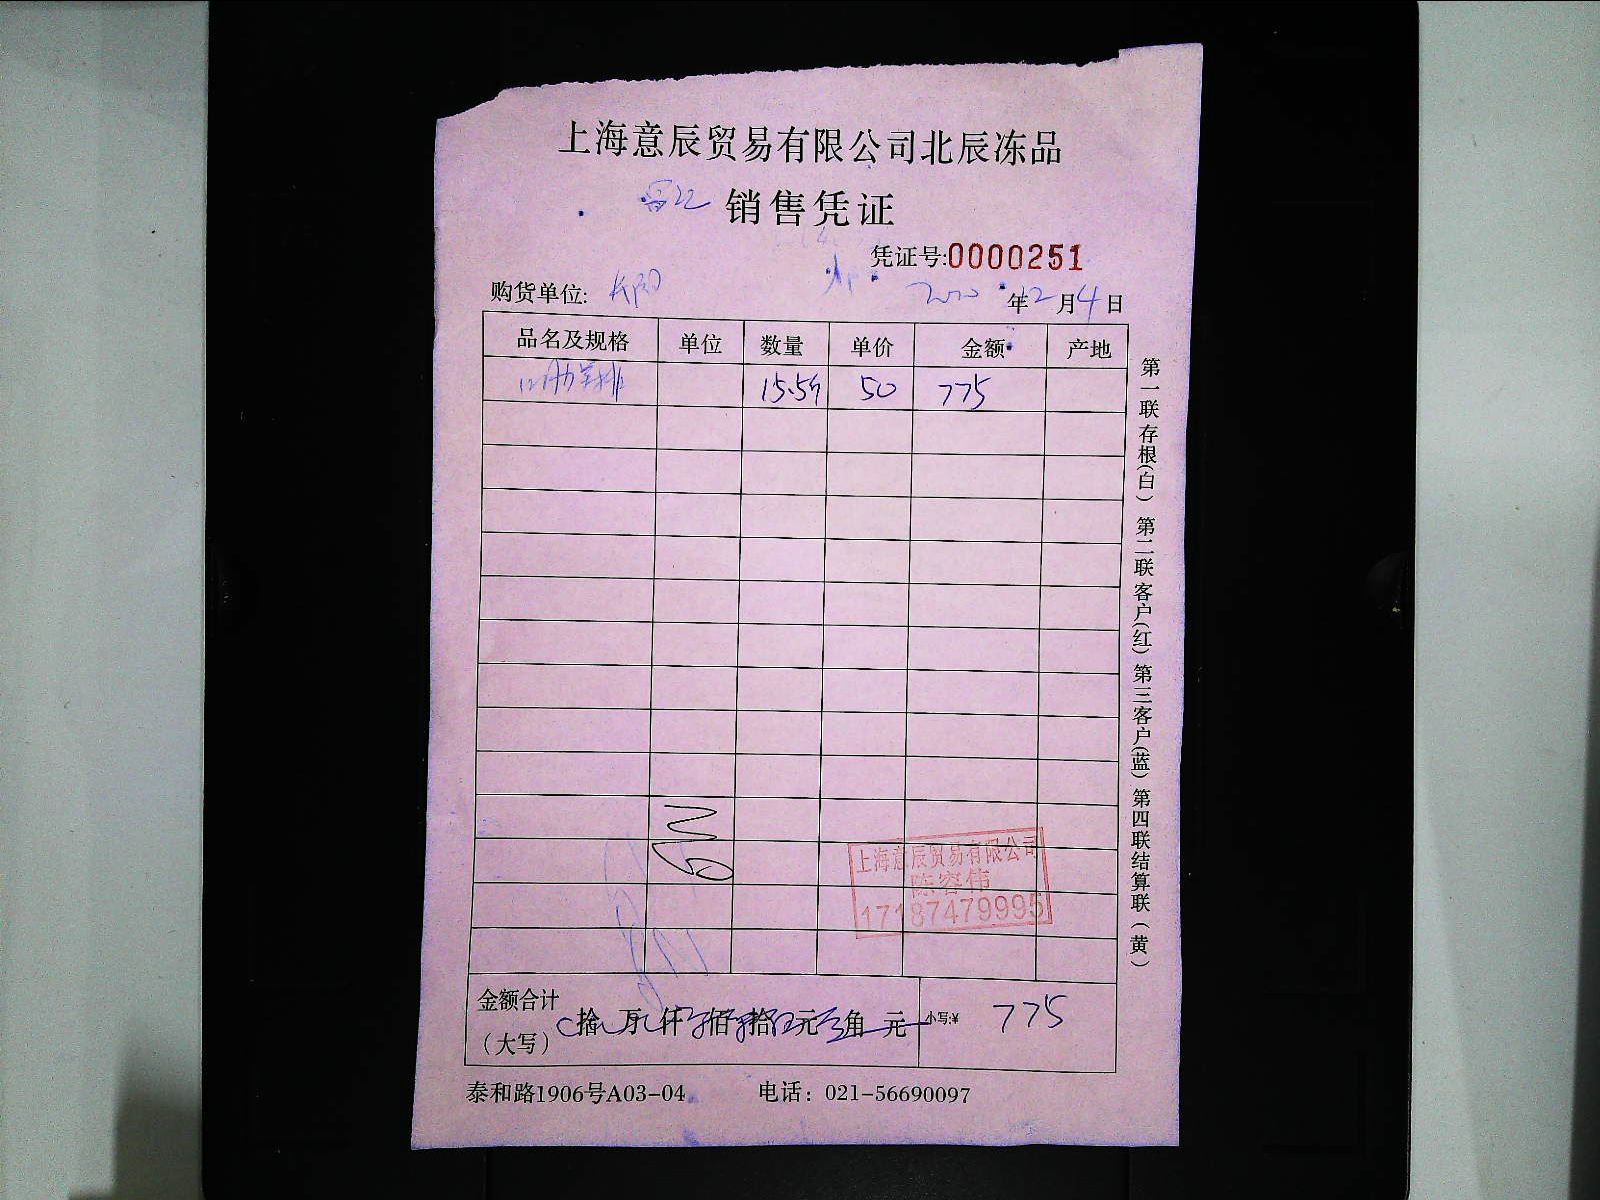 上海意辰贸易有限公司北辰冻品
销售凭证
凭证号:0000251
购货单位:
2020年12月4日
品名及规格 单位 数量 单价 金额 产地
12肋羊排 15.5斤 50 775
第一联存根(白) 第二联客户(红) 第三客户(蓝) 第四联结算联(黄)
上海意辰贸易有限公司
陈容伟
17187479995
金额合计
(大写) 拾 万 仟 佰 拾 元 角 元 小写:¥ 775
泰和路1906号A03-04 电话:021-56690097